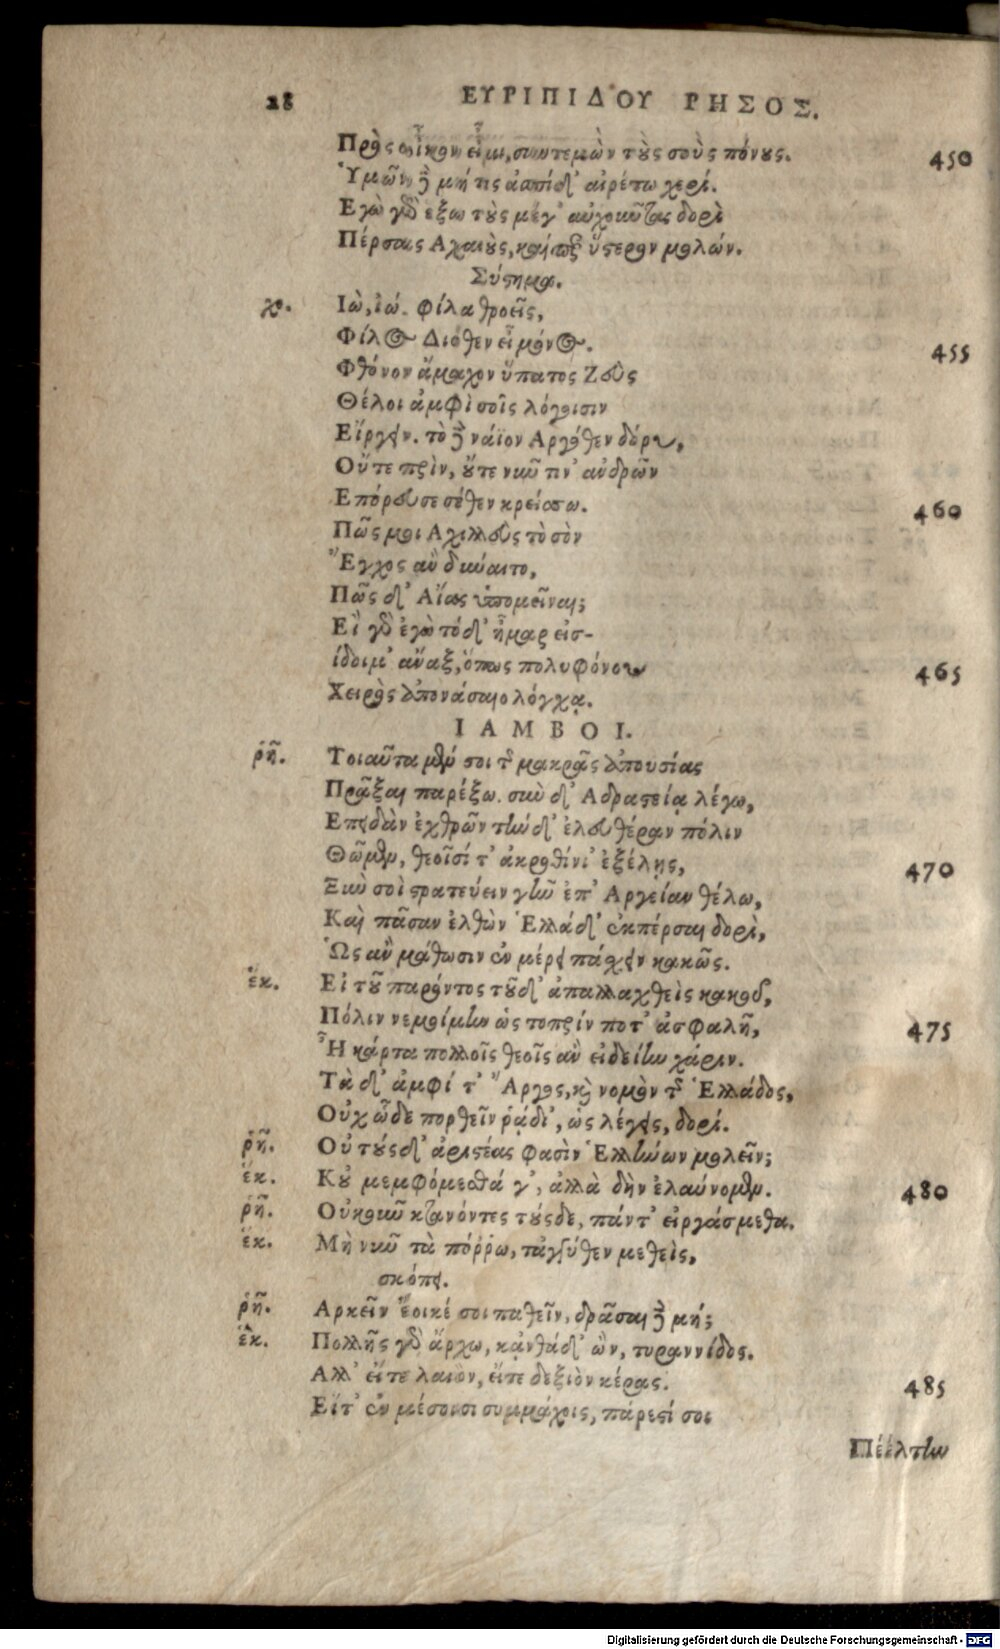 28 ΕΥΡΙΠΙΔΟΥ ΡΗΣΟΣ.
Πρὸς οἶκον εἶμι, συντεμὼν τοὺς σοὺς πόνους. 450
Ὑμῶν δὲ μή τις ἀσπίδ' αἰρέτω χερί.
Εγὼ γὰρ εξω τοὺς μέγ' αὐχοῦντας δορὶ
Πέρσας Αχαιοὺς, καίπερ ὕστερον μολών.
Σύστημα.
χο. Ιὼ, ἰώ. φίλα θροεῖς,
Φίλος Διόθεν εἶ μόνος. 455
Φθόνον ἄμαχον ὕπατος Ζεὺς
Θέλοι ἀμφὶ σοῖς λόγοισιν
Εἴργειν. τὸ δὲ νάϊον Αργόθεν δόρυ,
Οὔτε πρὶν, οὔτε νῦν τιν' ανδρῶν
Επόρευσε σέθεν κρείσσω. 460
Πῶς μοι Αχιλλεὺς τὸ σὸν
Ἔγχος ἂν δύναιτο,
Πῶς δ' Αἴας ὑπομεῖναι;
Εἰ γὰρ ἐγὼ τόδ' ἦμαρ εἰσ-
ίδοιμ' αναξ, ὅπως πολυφόνου 465
Χειρὸς ἀπονάσαιο λόγχᾳ.
ΙΑΜΒΟΙ.
ῥῆ. Τοιαῦτα μέν σοι τῆς μακρᾶς ἀπουσίας
Πρᾶξαι παρέξω. σὺν δ' Αδραστείᾳ λέγω,
Επειδὰν ἐχθρῶν τήνδ' ἐλευθέραν πόλιν
Θῶμεν, θεοῖσί τ' ἀκροθίνι' ἐξέλῃς, 470
Ξὺν σοὶ στρατεύειν γῆν ἐπ' Αργείαν θέλω,
Καὶ πᾶσαν ἐλθὼν Ἑλλάδ' ἐκπέρσαι δορὶ,
Ὡς ἂν μάθωσιν ἐν μέρει πάσχειν κακῶς.
ἕκ. Εἰ τοῦ παρόντος τοῦδ' ἀπαλλαχθεὶς κακοῦ,
Πόλιν νεμοίμην ὡς τοπρίν ποτ' ἀσφαλῆ, 475
Ἦ κάρτα πολλοῖς θεοῖς ἂν εἰδείην χάριν.
Τὰ δ' ἀμφί τ' Ἄργος, καὶ νομὸν τῆς Ἑλλάδος,
Οὐχ ὧδε πορθεῖν ῥᾴδι', ὡς λέγεις, δορί.
ῥῆ. Οὐ τούσδ' ἀριστέας φασὶν Ἑλλήνων μολεῖν;
ἕκ. Κοὐ μεμφόμεσθά γ', ἀλλὰ δὴν ἐλαύνομεν. 480
ῥῆ. Οὐκοῦν κτανόντες τούσδε, πάντ' εἰργάσμεθα.
ἕκ. Μὴ νῦν τὰ πόῤῥω, τἀγγύθεν μεθεὶς,
σκόπει.
ῥῆ. Αρκεῖν ἔοικέ σοι παθεῖν, δρᾶσαι δὲ μή;
ἕκ. Πολλῆς γὰρ ἄρχω, κᾀνθάδ' ὢν, τυραννίδος.
Αλλ' εἴτε λαιὸν, εἴτε δεξιὸν κέρας. 485
Εἴτ' ἐν μέσοισι συμμάχοις, πάρεστί σοι
Πέλτην
Digitalisierung gefördert durch die Deutsche Forschungsgemeinschaft - DFG